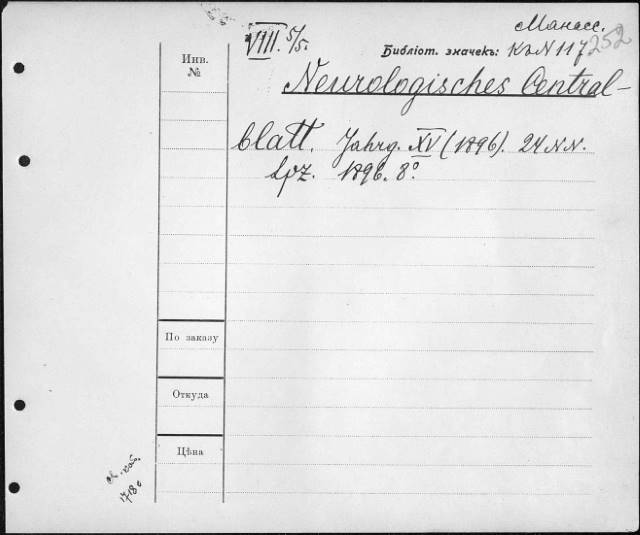 Манасс.
VIII. 5/5.
Библіот. значекъ: КъN 117 252
Инв.
№
Neurologisches Central-
blatt. Jahrg. XV (1896). 24 N.N.
Lpz. 1896. 8°.
По заказу
Откуда
Цѣна
1718